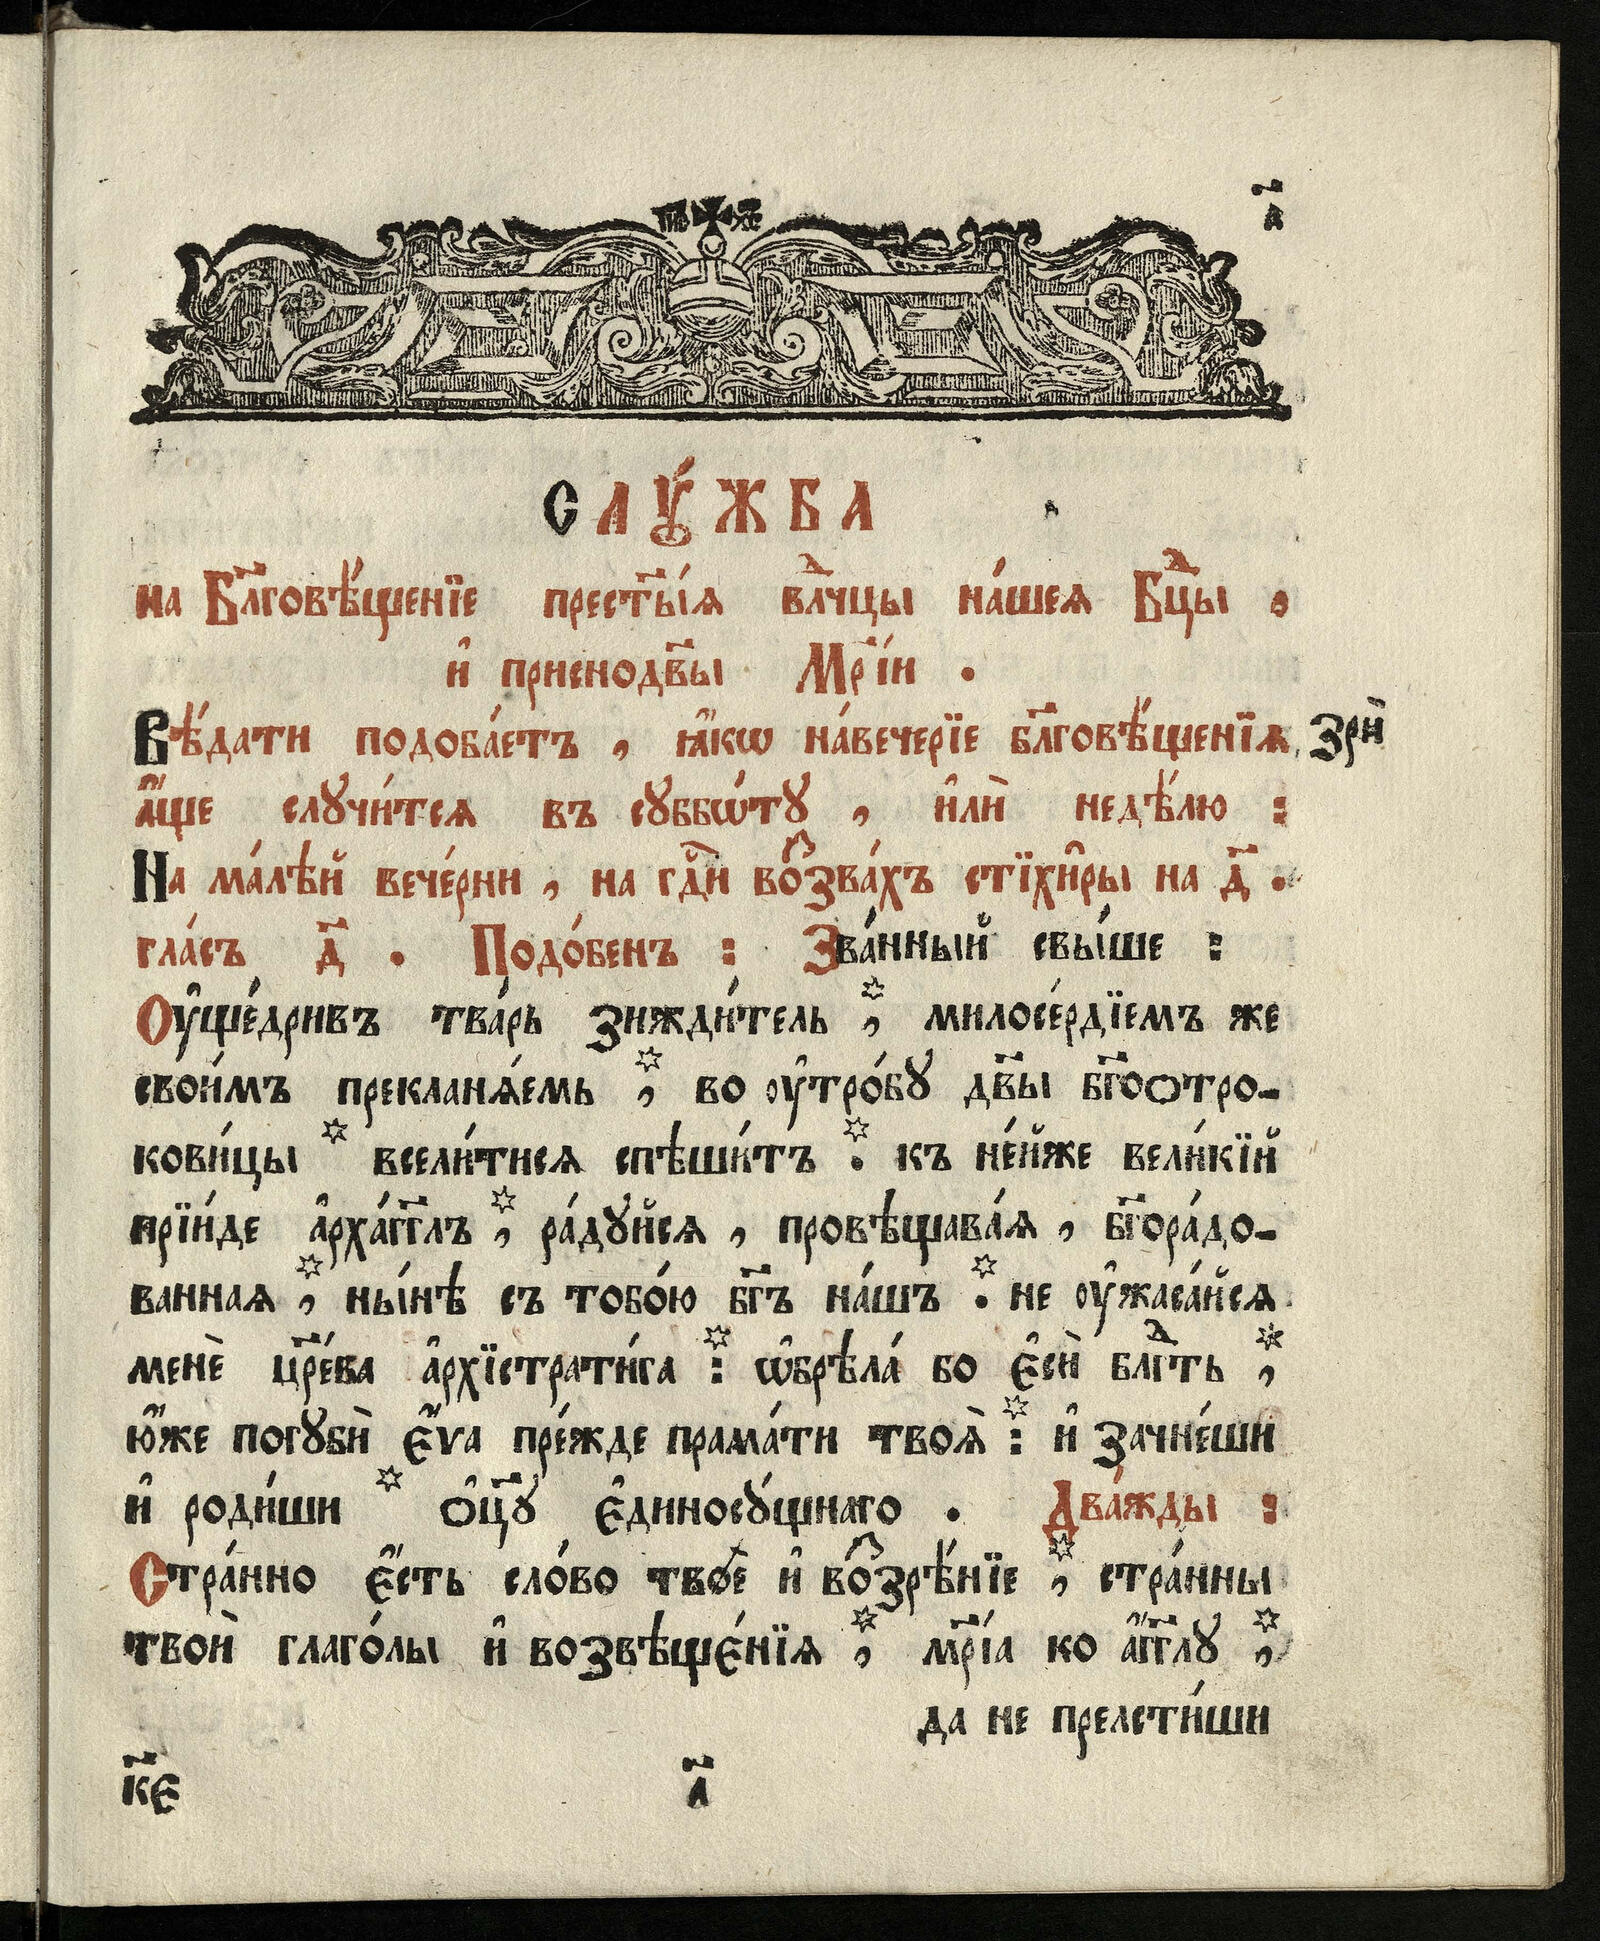 а҃
І҆С ХС
СЛꙊ́ЖБА
на Бл҃говѣ́щенїе прест҃ы́ѧ влⷣ҇чцы на́шеѧ Бцⷣ҇ы .
и҆ присноде҃вы Мр҃і́и .
Вѣ́дати подоба́етъ , ꙗ҆́кѡ на́вечерїе бл҃говѣ́щенїѧ, Зрѝ
а҆́ще слꙋчи́тсѧ въ сꙋббѡ́тꙋ , и҆лѝ недѣ́лю :
На ма́лѣй вече́рни , на гдⷭ҇и воⷥзва́хъ стїхи̑ры на д҃ .
гла́съ д҃ . Подо́бенъ : Зва́нный свы́ше :
Оу҆ще́дривъ тва́рь зижди́тель * , милосе́рдїемъ же
свои́мъ преклонѧ́емь * , во оу҆тро́бꙋ дв҃ы бг҃оѻтро-
кови́цы * всели́тисѧ спѣши́тъ * . къ не́йже вели́кїй
прїи́де а҆рха́гг҃лъ * , ра́дꙋйсѧ , провѣщава́ѧ , бг҃ора́до-
ваннаѧ * , ны́нѣ съ тобо́ю бг҃ъ на́шъ * . не оу҆жаса́йсѧ
менѐ цр҃е́ва а҆рхїстрати́га * : ѡ҆брѣла́ бо є҆сѝ блгⷣ҇ть * ,
ю҆́же погꙋбѝ є҆́ѵа пре́жде прама́ти твоѧ̀ * : и҆ зачне́ши
и҆ роди́ши * ѻ҆ц҃ꙋ є҆диносꙋ́щнаго . Два́жды :
Стра́нно є҆́сть сло́во твоѐ и҆ воⷥзрѣ́нїе * , стра́нны
твоѝ глаго́лы и҆ возвѣще́нїѧ * , мр҃і́а ко а҆́гг҃лꙋ * ,
да не прелсти́ши
к҃є л҃